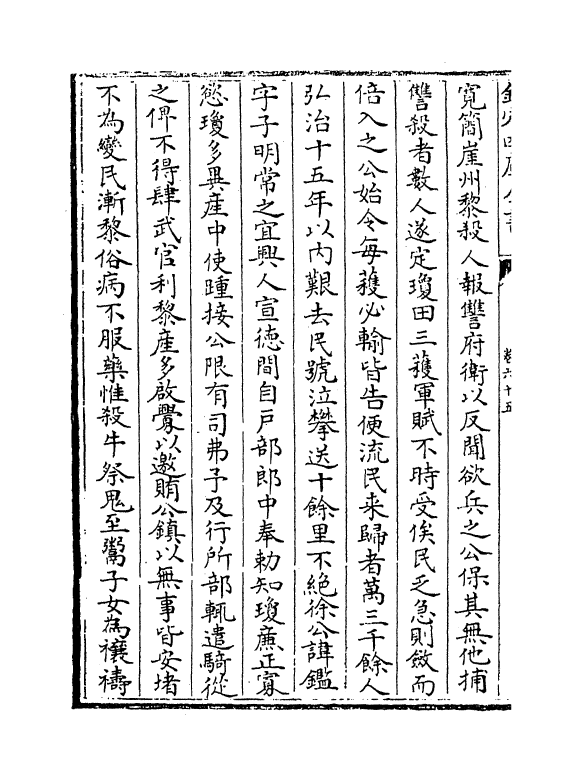 欽定四庫全書
卷六十五
寛簡崖州黎殺人報讐府衛以反聞欲兵之公保其無他捕
讐殺者數人遂定瓊田三穫軍賦不時受俟民乏急則斂而
倍入之公始令每穫必輸皆告便流民来歸者萬三千餘人
弘治十五年以内艱去民號泣攀送十餘里不絶徐公諱鑑
字子明常之宜興人宣徳間自戸部郎中奉勅知瓊㢘正寡
慾瓊多異產中使踵接公限有司弗予及行所部輒遣騎從
之俾不得肆武官利黎產多啟釁以邀賄公鎮以無事皆安堵
不為變民漸黎俗病不服藥惟殺牛祭鬼至鬻子女為禳禱